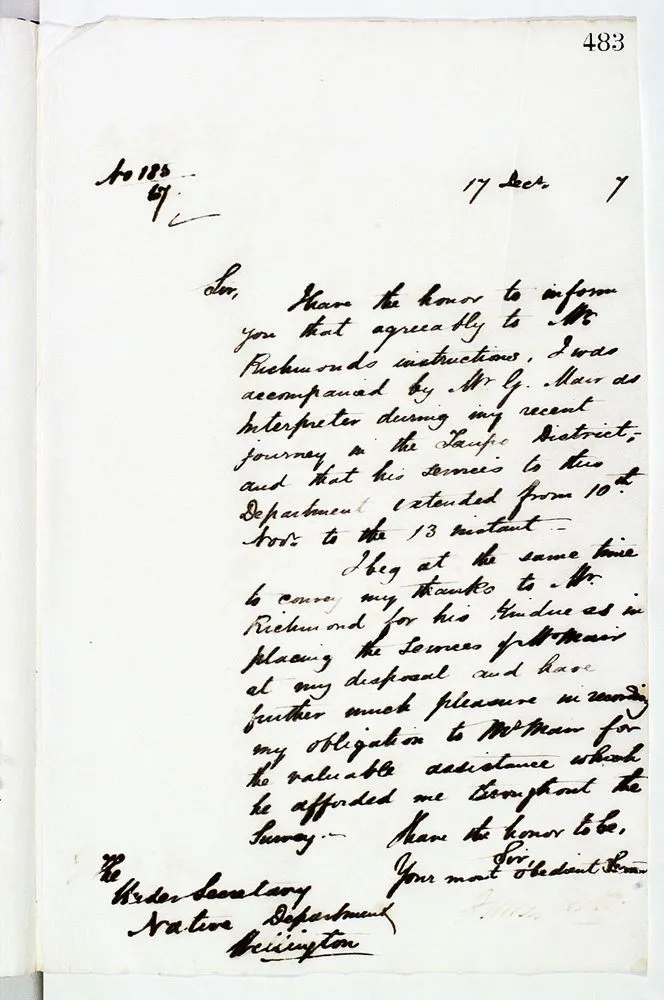 483
No 183
67
17 Decr. 7
Sir,
I have the honor to inform
you that agreeably to Mr
Richmonds instructions, I was
accompanied by Mr G. Mair as
Interpreter during my recent
journey in the Taupo District,
and that his services to this
Department extended from 10th
Novr. to the 13 instant –
I beg at the same time
to convey my thanks to Mr.
Richmond for his kindness in
placing the services of Mr Mair
at my disposal and have
further much pleasure in recording
my obligation to Mr Mair for
the valuable assistance which
he afforded me throughout the
Survey. –
I have the honor to be,
Sir,
Your most obedient Servan
The
Under Secretary
Native Department
Wellington